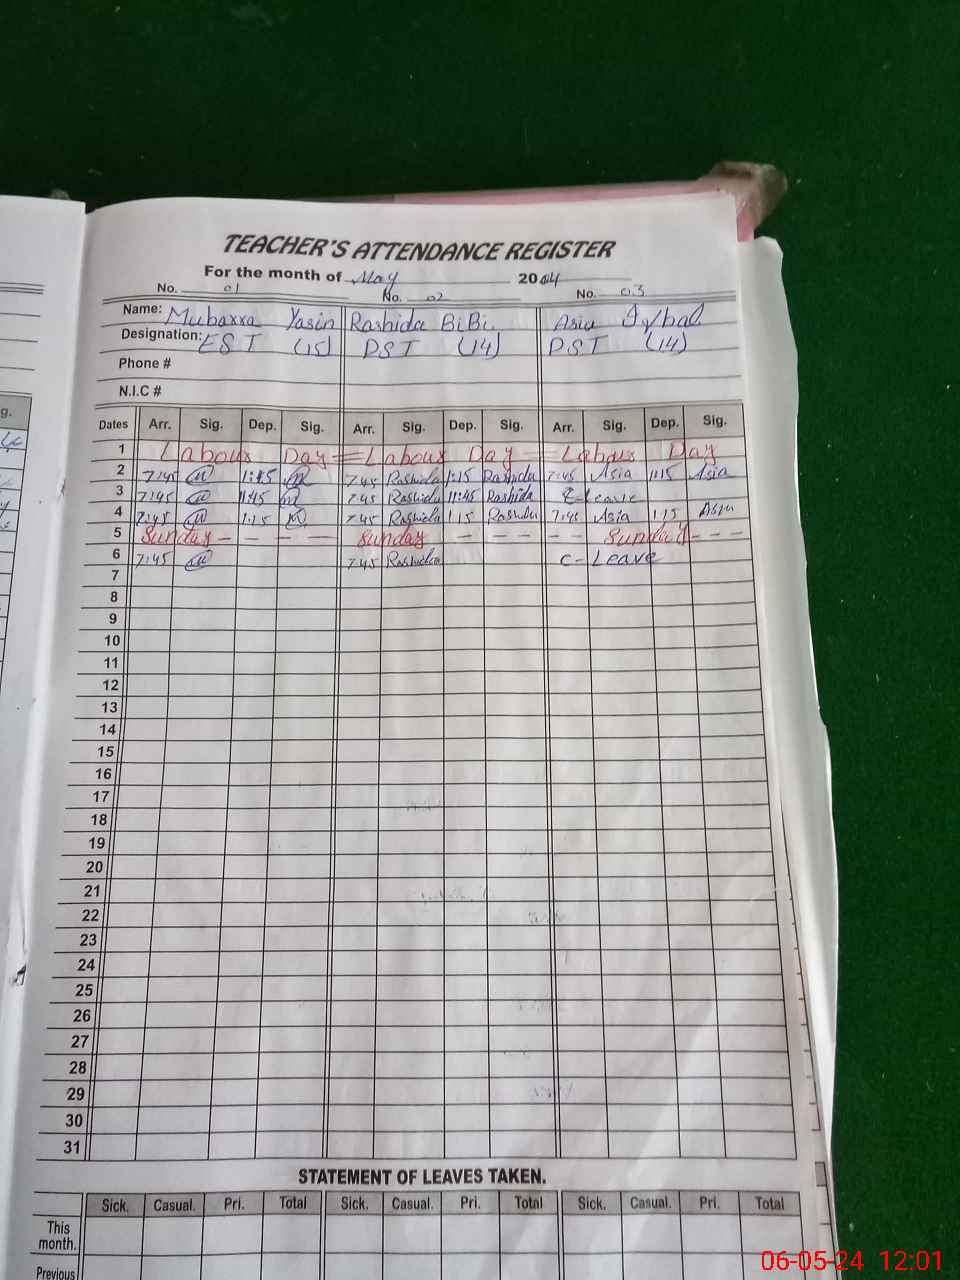 TEACHER'S ATTENDANCE REGISTER
For the month of May 2024
No. 01 No. 02 No. 03
Name: Mubarra Yasin Rashida BiBi. Asia Iqbal
Designation: EST (15) PST (14) PST (14)
Phone #
N.I.C #
Dates Arr. Sig. Dep. Sig. Arr. Sig. Dep. Sig. Arr. Sig. Dep. Sig.
1 Labour Day = Labour Day = Labour Day
2 7:45 1:15 7:45 Rashida 1:15 Rashida 7:45 Asia 1:15 Asia
3 7:45 11:45 7:45 Rashida 11:45 Rashida C-leave
4 7:45 1:15 7:45 Rashida 1:15 Rashida 7:45 Asia 1:15 Asia
5 Sunday - - - - Sunday - - - - - Sunday - - -
6 7:45 7:45 Rashida C-Leave
7
8
9
10
11
12
13
14
15
16
17
18
19
20
21
22
23
24
25
26
27
28
29
30
31
STATEMENT OF LEAVES TAKEN.
Sick. Casual. Pri. Total Sick. Casual. Pri. Total Sick. Casual. Pri. Total
This
month.
Previous
06-05-24 12:01